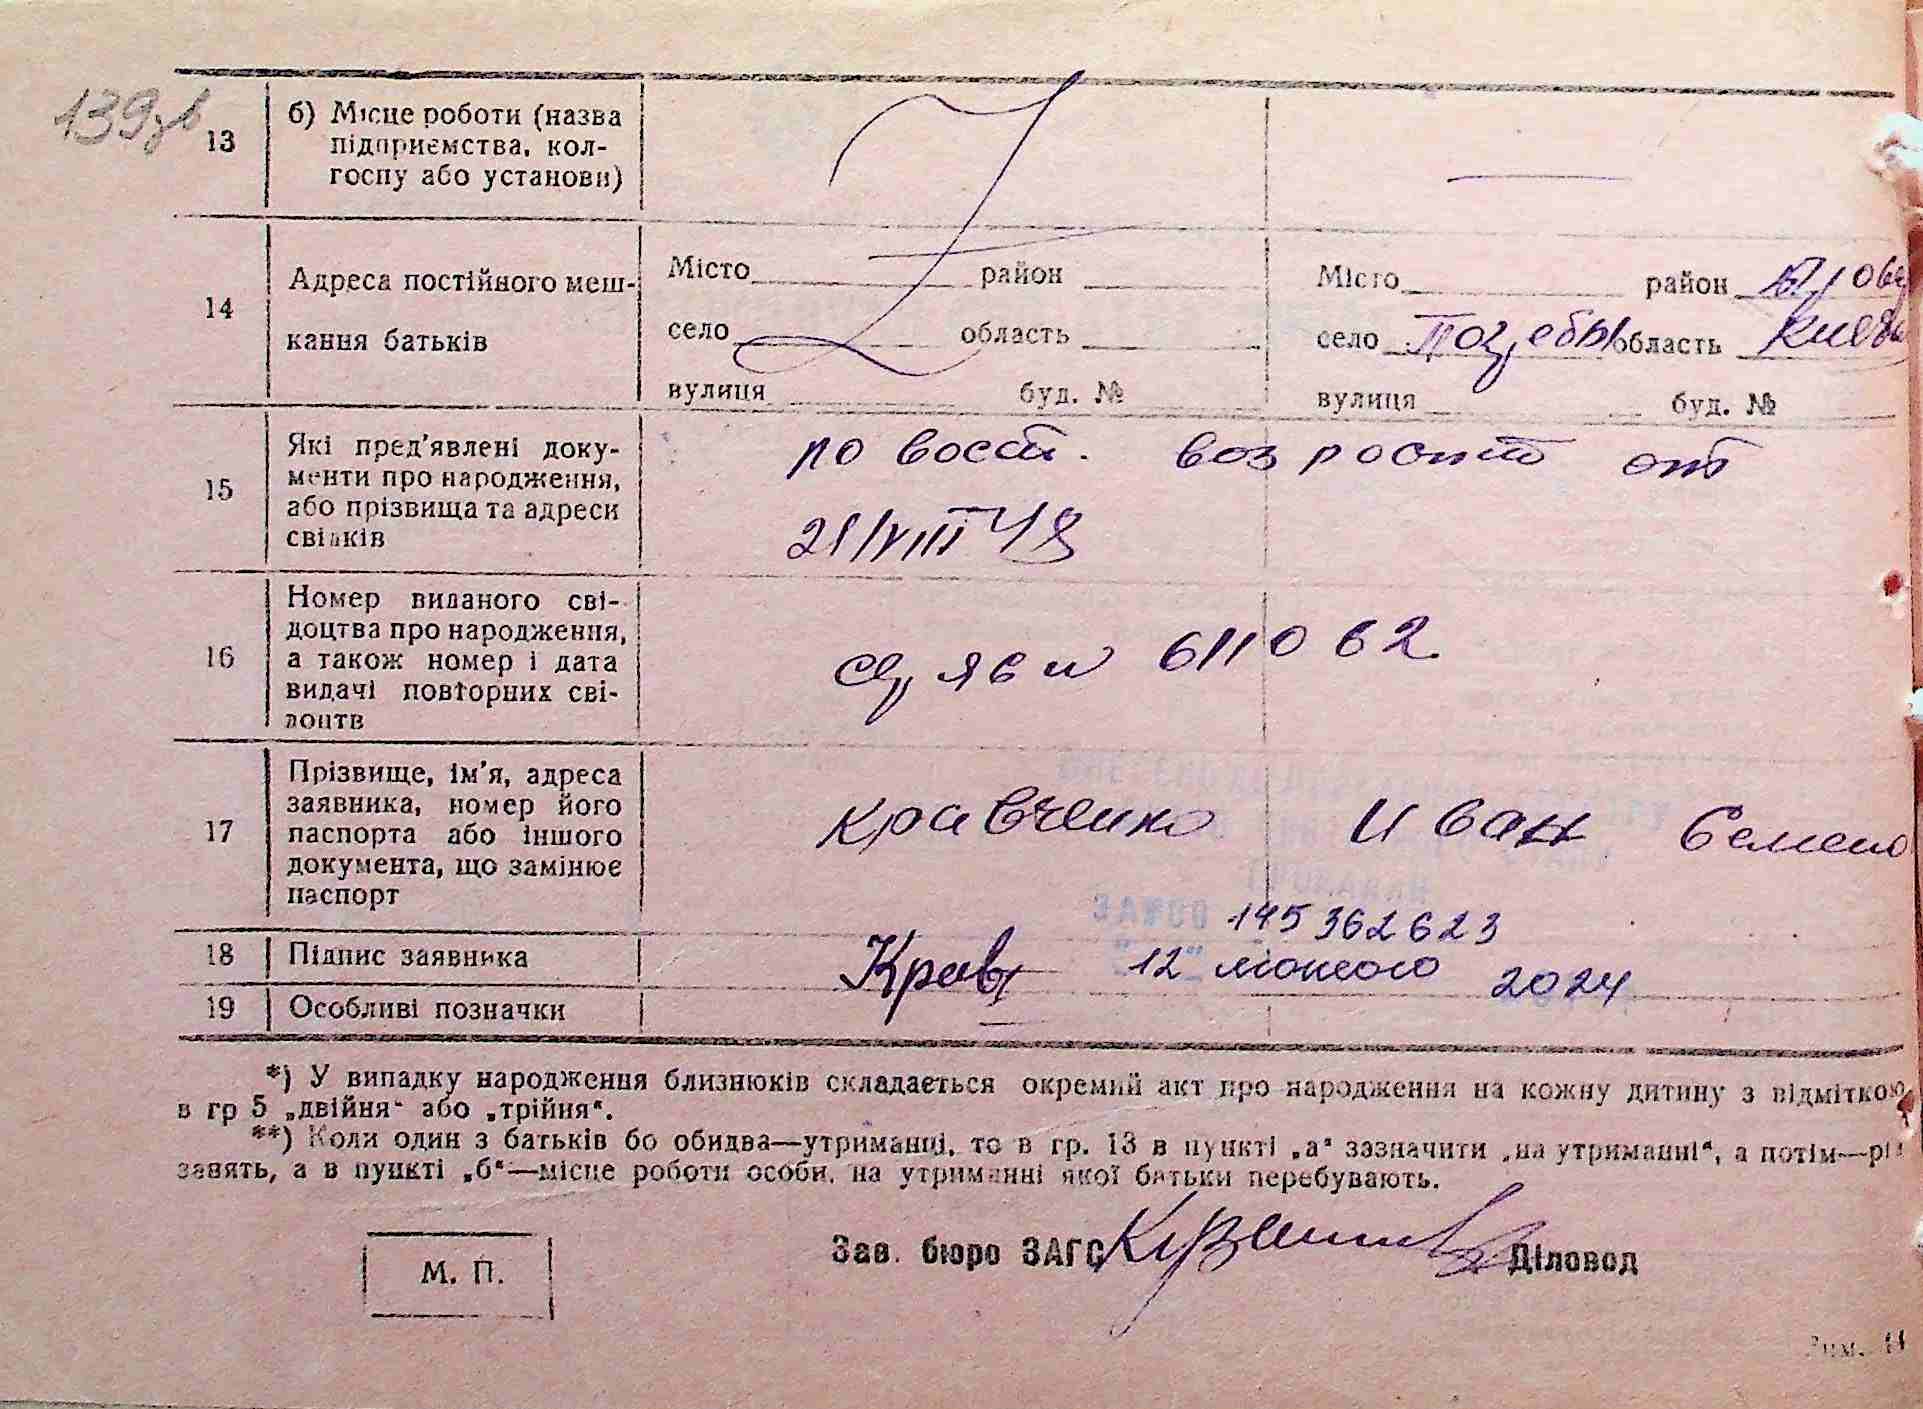 139зв
13 б) Місце роботи (назва
підприємства, кол-
госпу або установи)
14 Адреса постійного меш-
кання батьків
Місто район
село область
вулиця буд. №
Місто район
село область
вулиця буд. №
15 Які пред'явлені доку-
менти про народження,
або прізвища та адреси
свідків
по восст. возраста от
21/VIII 48
16 Номер виданого сві-
доцтва про народження,
а також номер і дата
видачі повторних сві-
доцтв
611062
17 Прізвище, ім'я, адреса
заявника, номер його
паспорта або іншого
документа, що замінює
паспорт
Кравченко Иван Семено
145362623
18 Підпис заявника
Крав 12 лютого 2024
19 Особливі позначки
*) У випадку народження близнюків складається окремий акт про народження на кожну дитину з відміткою
в гр 5 „двійня“ або „трійня“.
**) Коли один з батьків бо обидва—утриманці, то в гр. 13 в пункті „а“ зазначити „на утриманні“, а потім—рід
занять, а в пункті „б“—місце роботи особи, на утриманні якої батьки перебувають.
Зав. бюро ЗАГС Діловод
М. П.